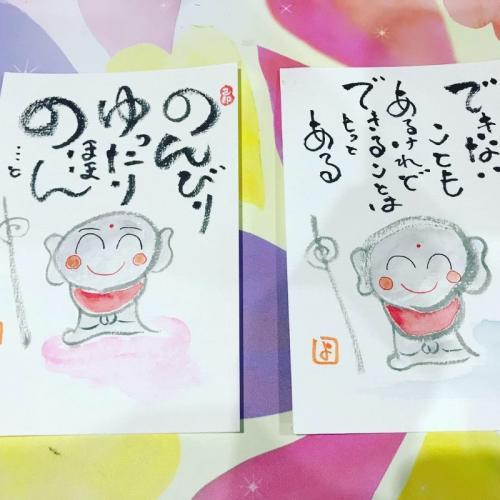 のんびり
ゆったり
のほほん
…と
できない
ことも
あるけれど
できることは
もっと
ある
よ